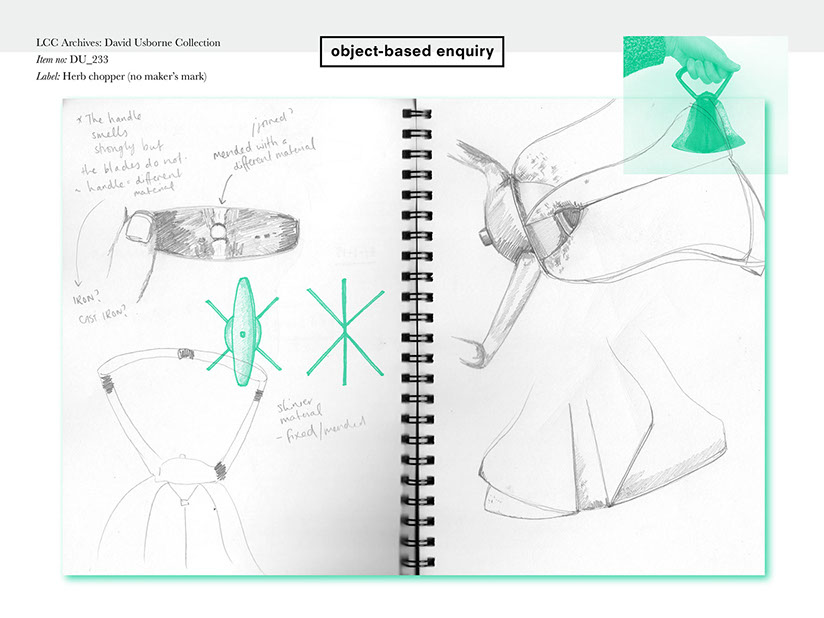 LCC Archives: David Usborne Collection
Item no: DU_233
Label: Herb chopper (no maker's mark)
object-based enquiry
* The handle
smells
strongly but
the blades do not.
handle = different
material
joined?
mended with a
different material
IRON?
CAST IRON?
shinier
material
- fixed/mended